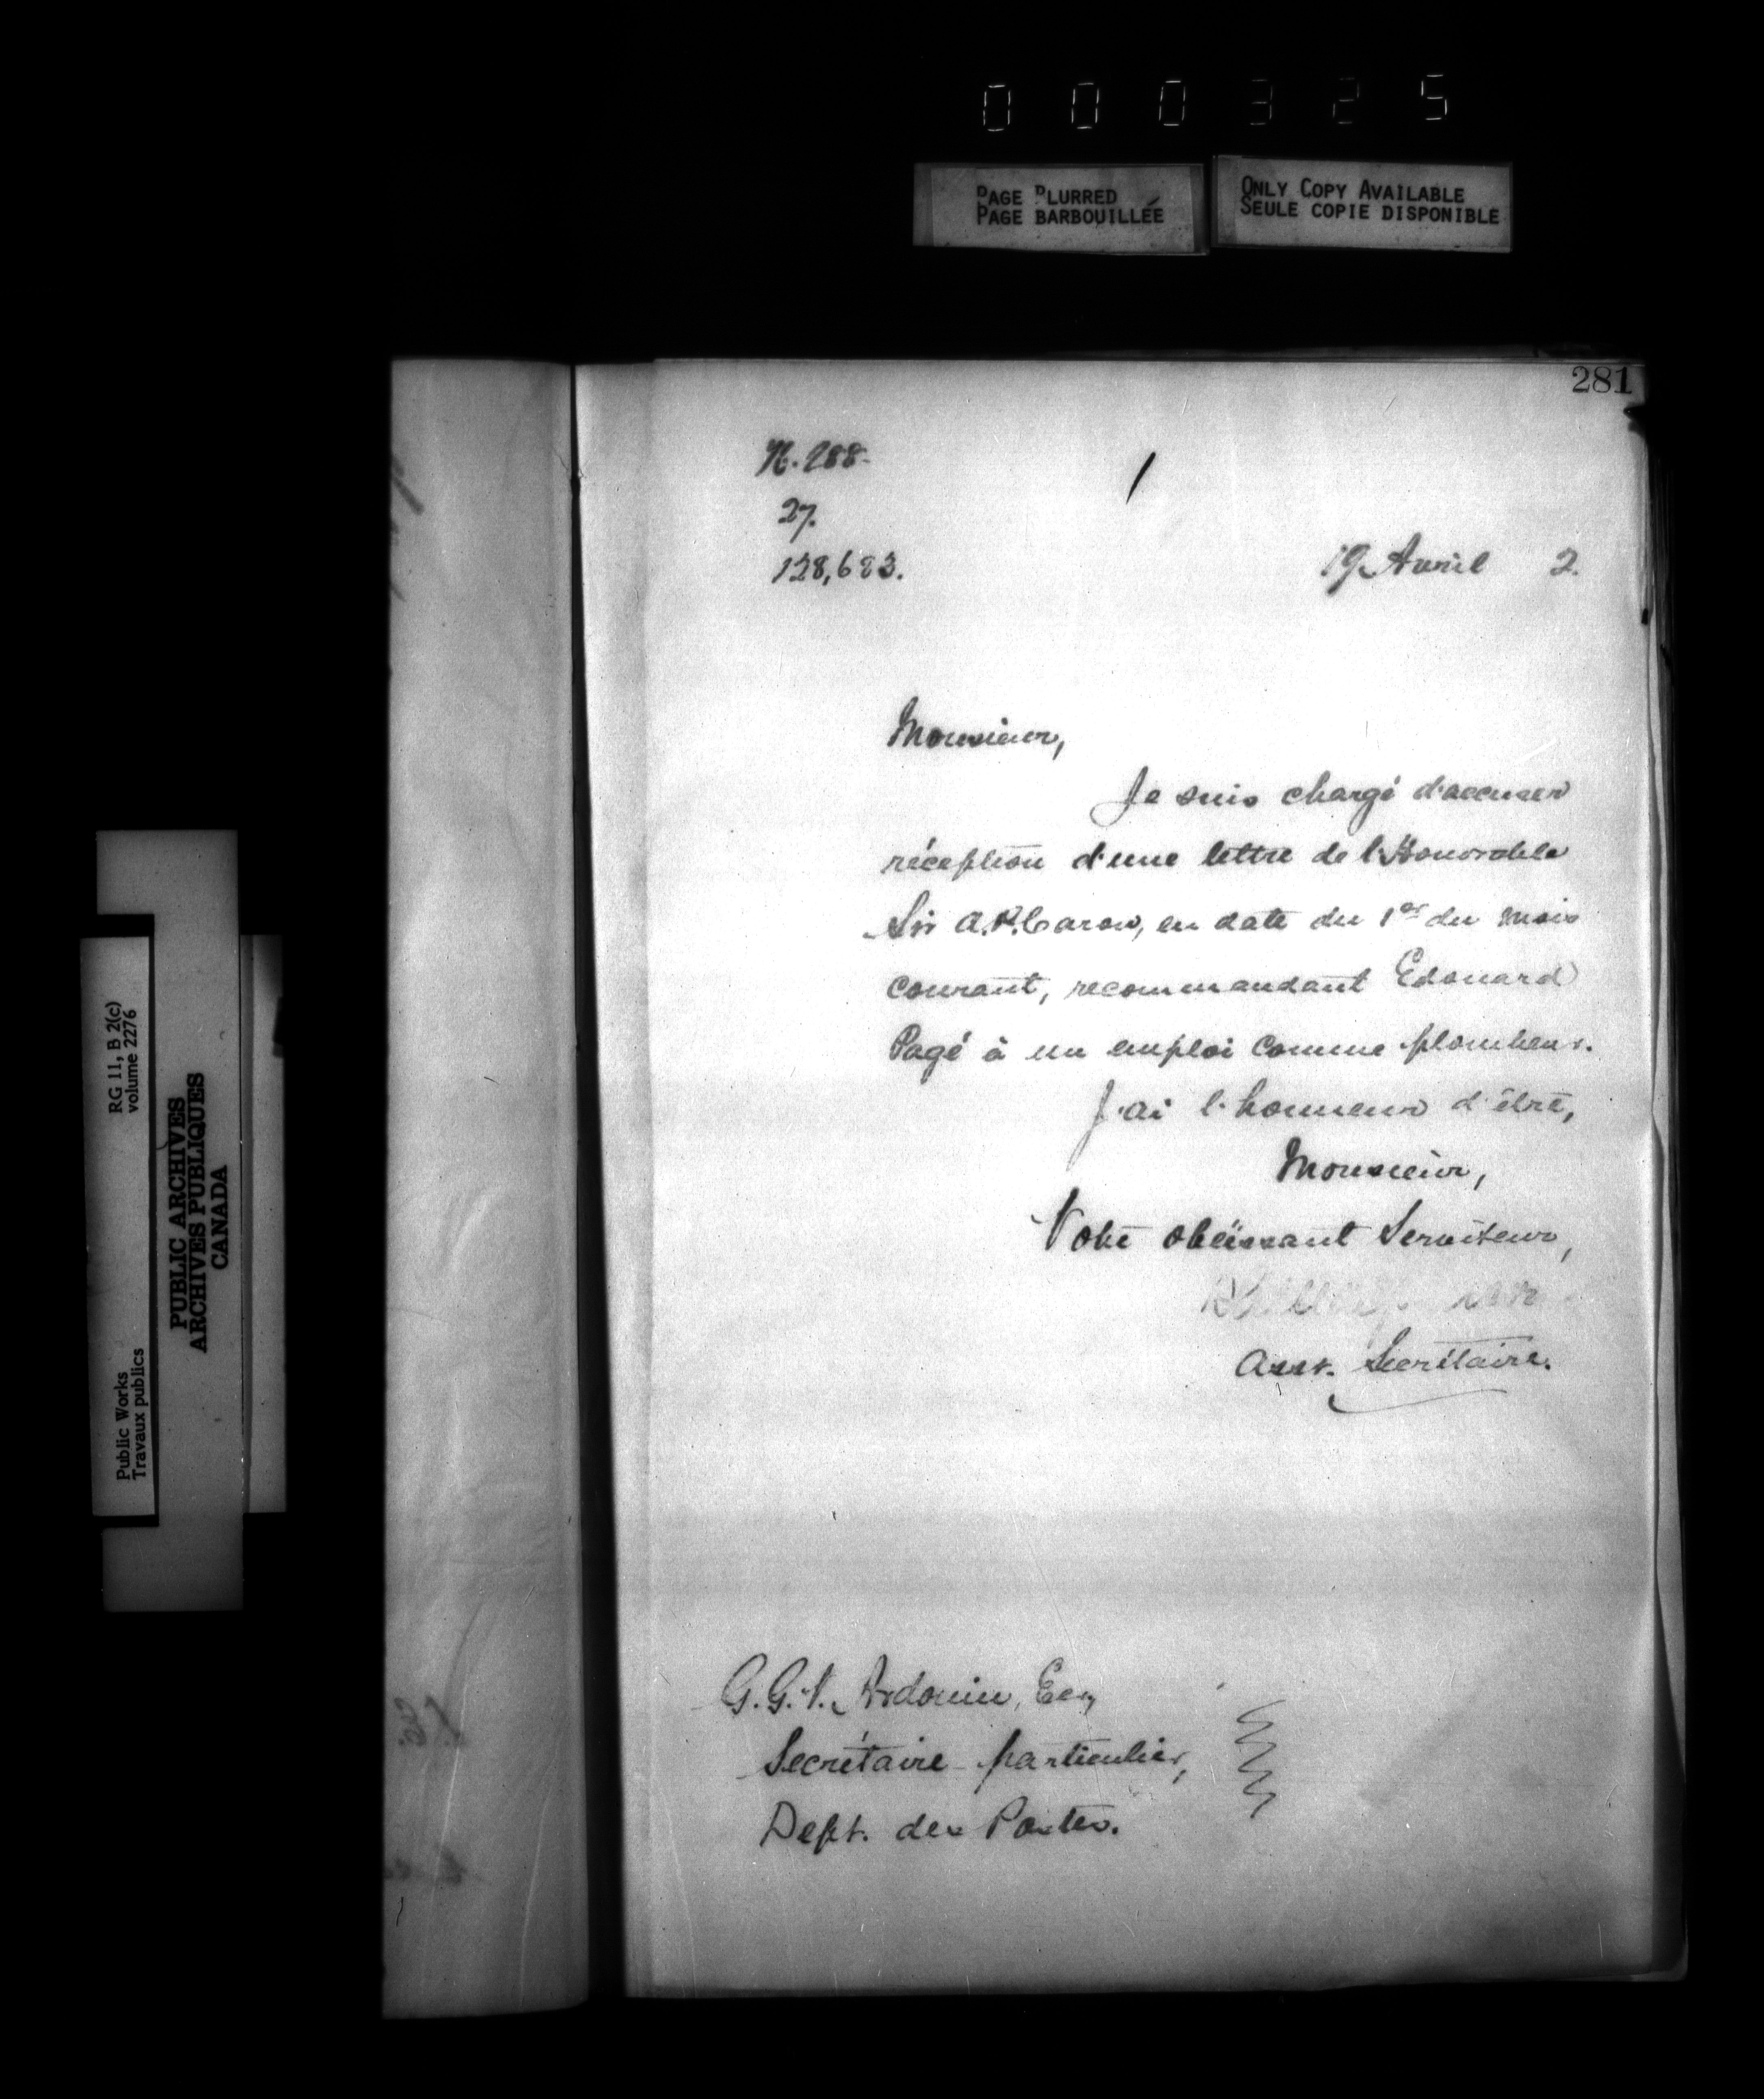 000325
PAGE BLURRED
PAGE BARBOUILLÉE
ONLY COPY AVAILABLE
SEULE COPIE DISPONIBLE
281
27.
128,683.
19 Avril 2.
Monsieur,
Je suis chargé d'accuser
réception d'une lettre de l'Honorable
Sir A.P. Caron, en date du 1er du mois
courant, recommandant Edouard
Pagé à un emploi comme plombeur.
J'ai l'honneur d'être,
Monsieur,
Votre obéissant Serviteur,
Asst. Secrétaire.
G.G.V. Ardouin, Ecr,
Secrétaire particulier,
Dept. des Postes.
RG 11, B 2(c)
volume 2276
Public Works
Travaux publics
PUBLIC ARCHIVES
ARCHIVES PUBLIQUES
CANADA